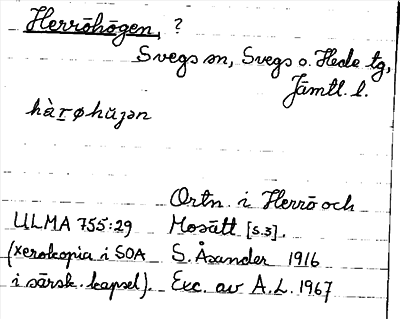 Herröhögen, ?
Svegs sn, Svegs o. Hede tg,
Jämtl. l.
hàr̲øhùjən
Ortn. i Herrö och
ULMA 755:29 Mosätt [s.3].
(xerokopia i SOA S. Åsander 1916
i särsk. kapsel). Exc. av A.L. 1967